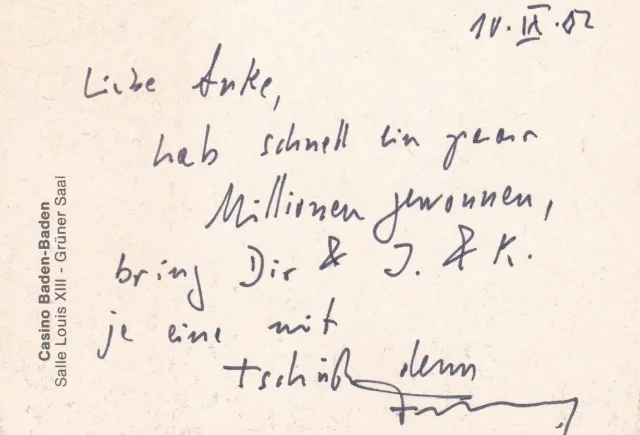 10. IX. 82
Liebe Anke,
hab schnell ein paar
Millionen gewonnen,
bring Dir & J. & K.
je eine mit
tschüß denn
Casino Baden-Baden
Salle Louis XIII - Grüner Saal